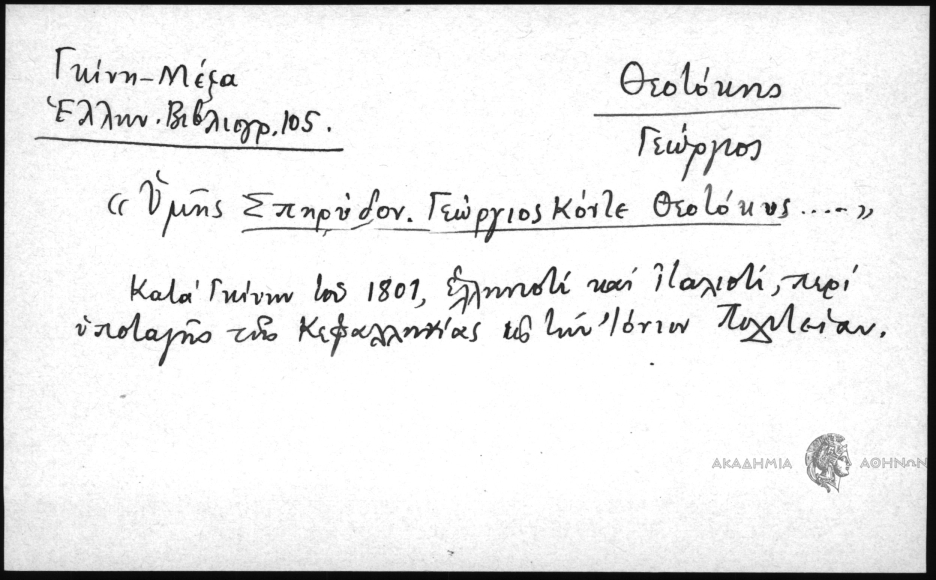 Γκίνη-Μέξα
Ἑλλην. Βιβλιογρ. 105.
Θεοτόκης
Γεώργιος
«Ὑμῆς Σπηρύδον. Γεώργιος Κόντε Θεοτόκης .....»
Κατά Γκίνην τοῦ 1801, ἑλληνιστί καί Ἰταλιστί, περί
ὑποταγῆς τῆς Κεφαλληνίας εἰς τήν Ἰόνιον Πολιτείαν.
ΑΚΑΔΗΜΙΑ ΑΘΗΝΩΝ